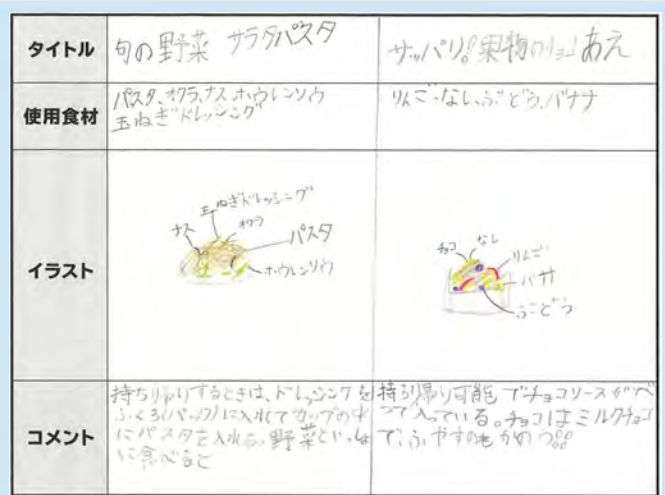 タイトル
旬の野菜 サラダパスタ
サッパリ!果物のチョコあえ
使用食材
パスタ、オクラ、ナス、ホウレンソウ
玉ねぎドレッシング
りんご、なし、ぶどう、バナナ
イラスト
玉ねぎドレッシング
ナス
オクラ
パスタ
ホウレンソウ
チョコ
なし
りんご
バナナ
ぶどう
コメント
持ち帰りするときは、ドレッシングを
ふくろ(パック)に入れてカップの中
にパスタを入れる。野菜といっしょ
に食べると
持ち帰り可能でチョコソースがべ
つで入っている。チョコはミルクチョコ
で、ふやすのもかのう!!